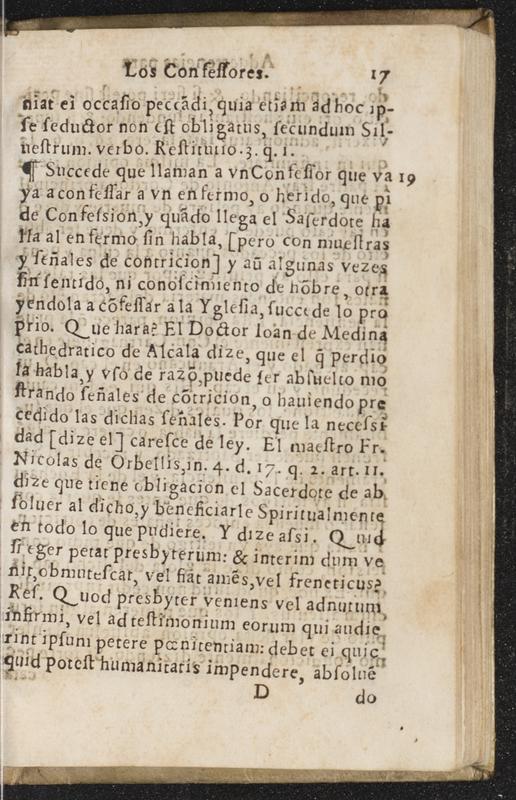 Los Confessores. 17
niat ei occasio peccādi, quia etiam ad hoc ip-
se seductor non est obligatus, secundum Sil-
uestrum. verbo. Restitutio. 3. q. 1.
¶ Succede que llaman a vn Confessor que va 19
ya a confessar a vn enfermo, o herido, que pi
de Confession, y quādo llega el Saserdote ha
lla al enfermo sin habla, [pero con muestras
y señales de contricion] y aū algunas vezes
sin sentido, ni conoscimiento de hōbre, otra
yendola a cōfessar a la Yglesia, succede lo pro
prio. Que hara? El Doctor Ioan de Medina
cathedratico de Alcala dize, que el q̄ perdio
la habla, y vso de razō, puede ser absuelto mo
strando señales de cōtricion, o hauiendo pre
cedido las dichas señales. Por que la necessi
dad [dize el] caresce de ley. El maestro Fr.
Nicolas de Orbellis, in. 4. d. 17. q. 2. art. 11.
dize que tiene obligacion el Sacerdote de ab
soluer al dicho, y beneficiarle Spiritualmente
en todo lo que pudiere. Y dize assi. Quid
si eger petat presbyterum: & interim dum ve
nit, obmutescat, vel fiat amēs, vel freneticus?
Res. Quod presbyter veniens vel ad nutum
infirmi, vel ad testimonium eorum qui audie
rint ipsum petere pœnitentiam: debet ei quic
quid potest humanitatis impendere, absoluē
D do